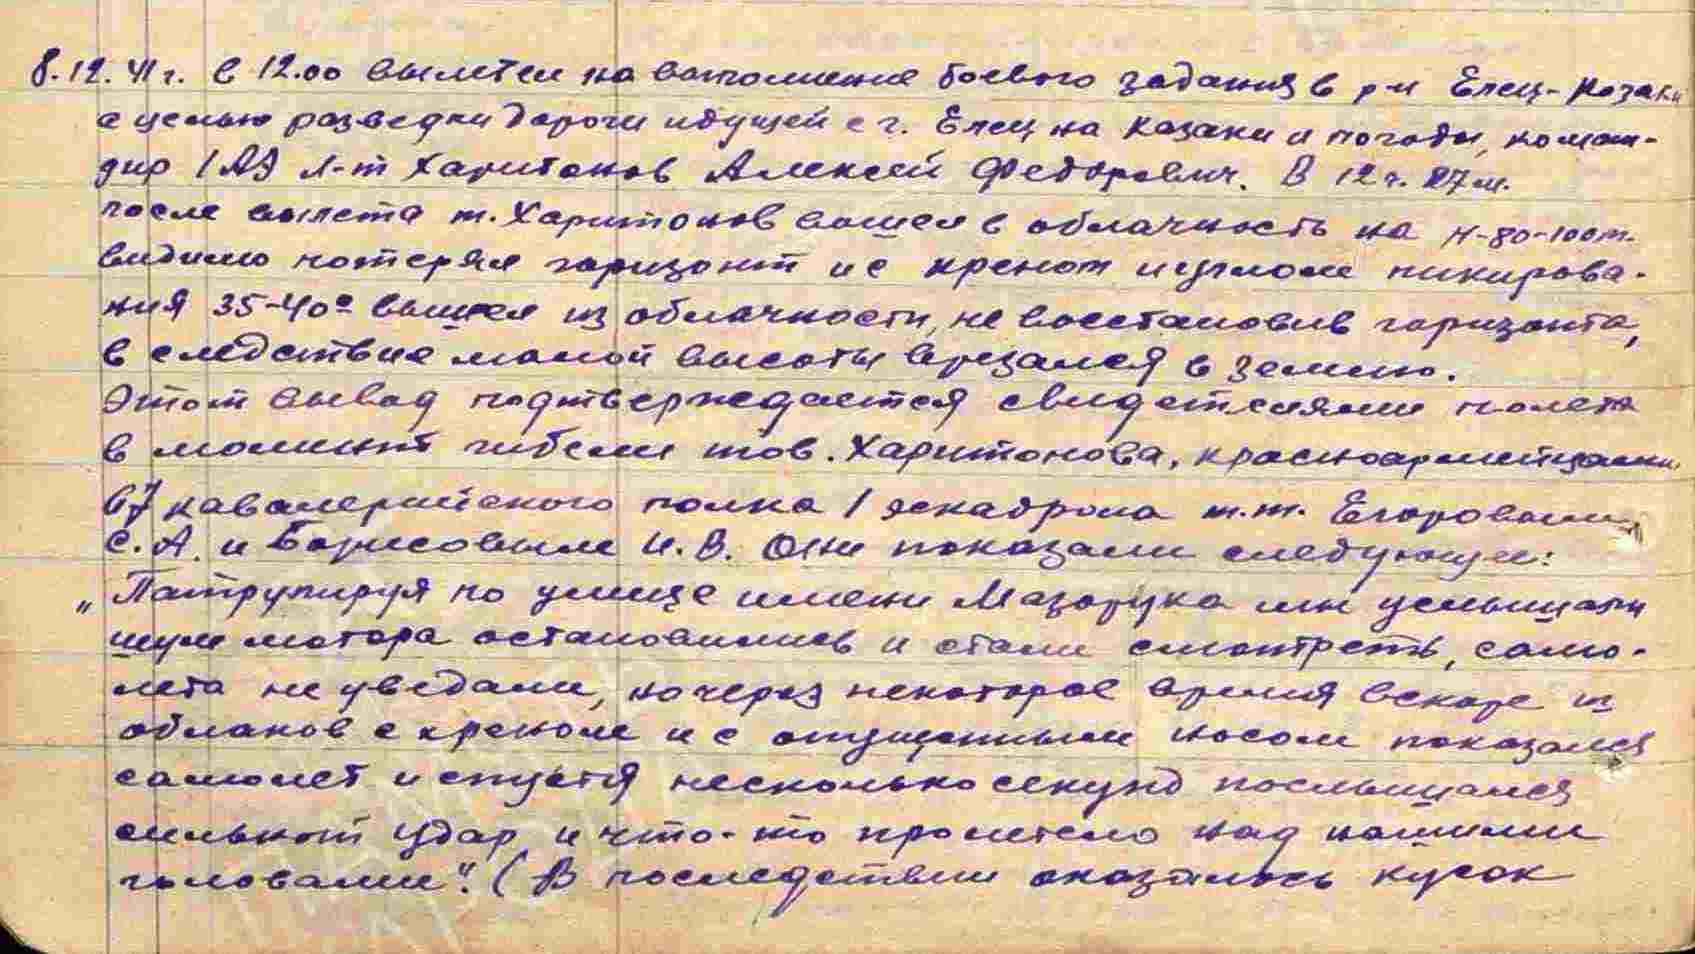 8.12.41 г. в 12.00 вылетел на выполнение боевого задания в р-н Елец-Казаки
с целью разведки дороги идущей с г. Елец на Казаки и погоды, коман-
дир 1 АЭ л-т Харитонов Алексей Федорович. В 12 ч. 27 м.
после вылета т. Харитонов вошел в облачность на Н-80-100 м.
видимо потерял горизонт и с креном и углом пикирова-
ния 35-40° вышел из облачности, не восстановив горизонта,
в следствие малой высоты врезался в землю.
Этот вывод подтверждается свидетелями полета
в момент гибели тов. Харитонова, красноармейцами
67 кавалерийского полка 1 эскадрона т.т. Егоровым
С.А. и Борисовым И.В. Они показали следующее:
„Патрулируя по улице имени Мазорука мы услышали
шум мотора остановились и стали смотреть, само-
лета не увидали, но через некоторое время вскоре из
облаков с креном и с опущенным носом показался
самолет и спустя несколько секунд послышался
сильный удар и что-то пролетело над нашими
головами". (В последствии оказалось кусок